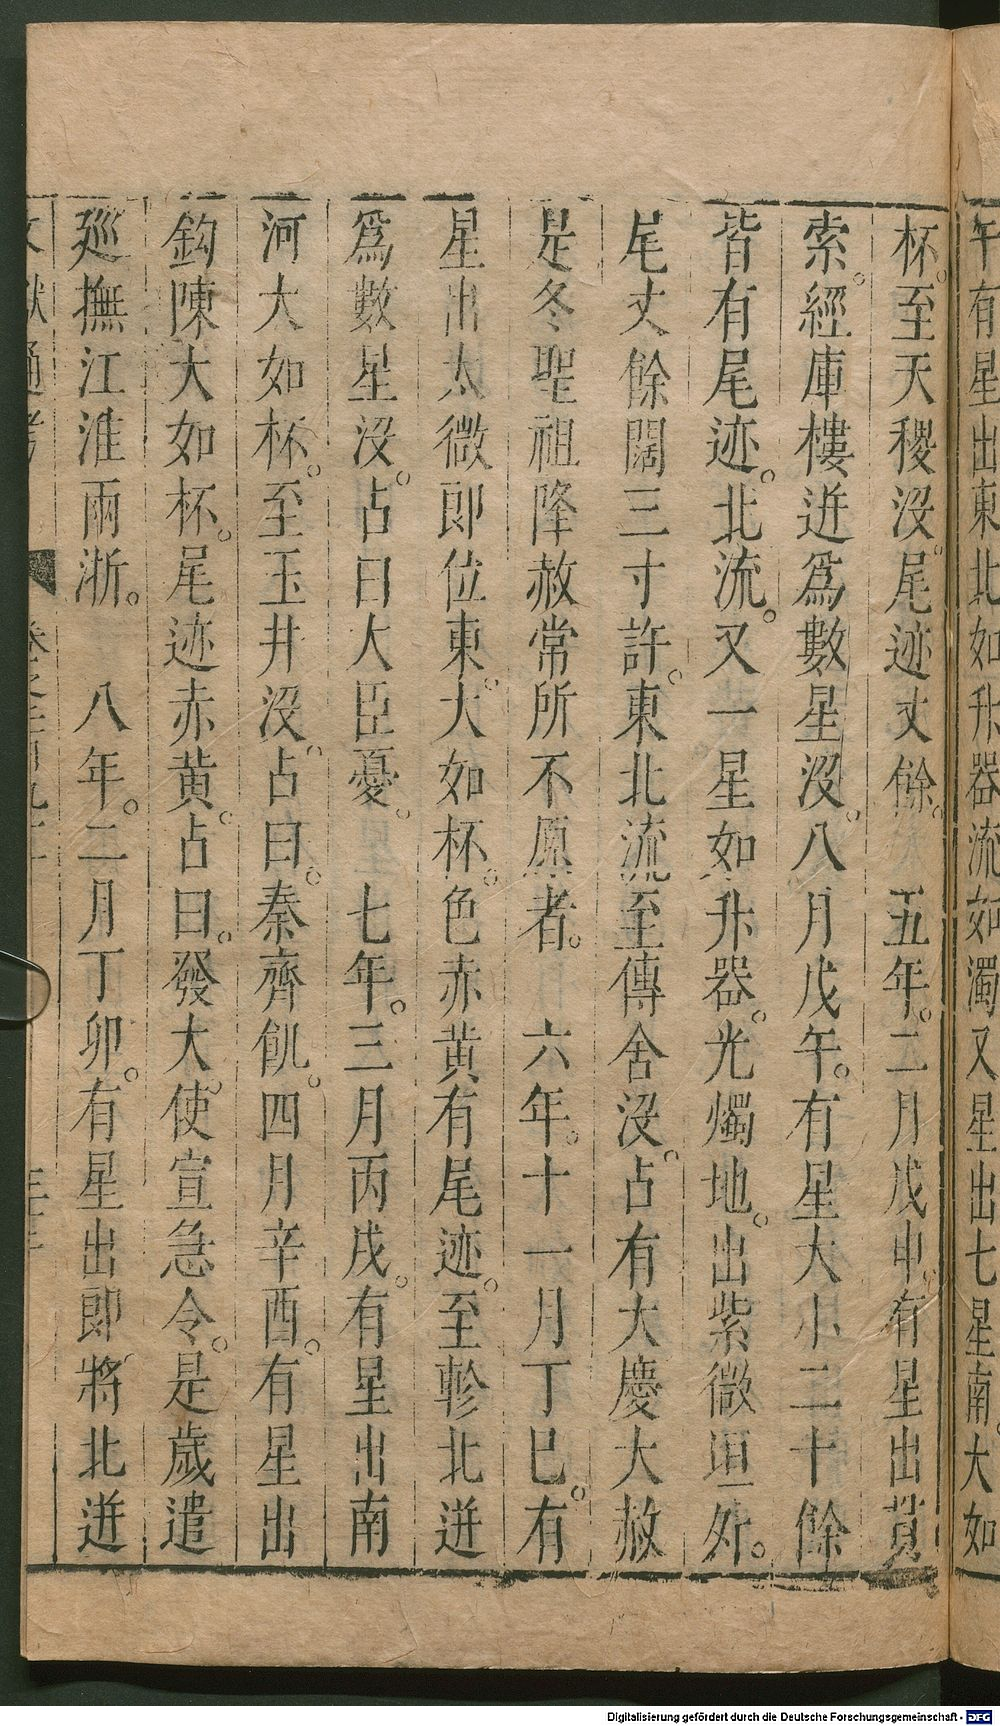 午有星出東北如升器流如濁又星出七星南大如
杯至天稷沒尾迹丈餘　五年二月戊申有星出貫
索經庫樓迸爲數星沒八月戊午有星大小二十餘
皆有尾迹北流又一星如升器光燭地出紫微垣外
尾丈餘闊三寸許東北流至傳舍沒占有大慶大赦
是冬聖祖降赦常所不原者　六年十一月丁巳有
星出太微即位東大如杯色赤黃有尾迹至軫北迸
爲數星沒占曰大臣憂　七年三月丙戌有星出南
河大如杯至玉井沒占曰秦齊飢四月辛酉有星出
鈎陳大如杯尾迹赤黃占曰發大使宣急令是歲遣
廵撫江淮兩浙　八年二月丁卯有星出即將北迸
文獻通考
Digitalisierung gefördert durch die Deutsche Forschungsgemeinschaft - DFG